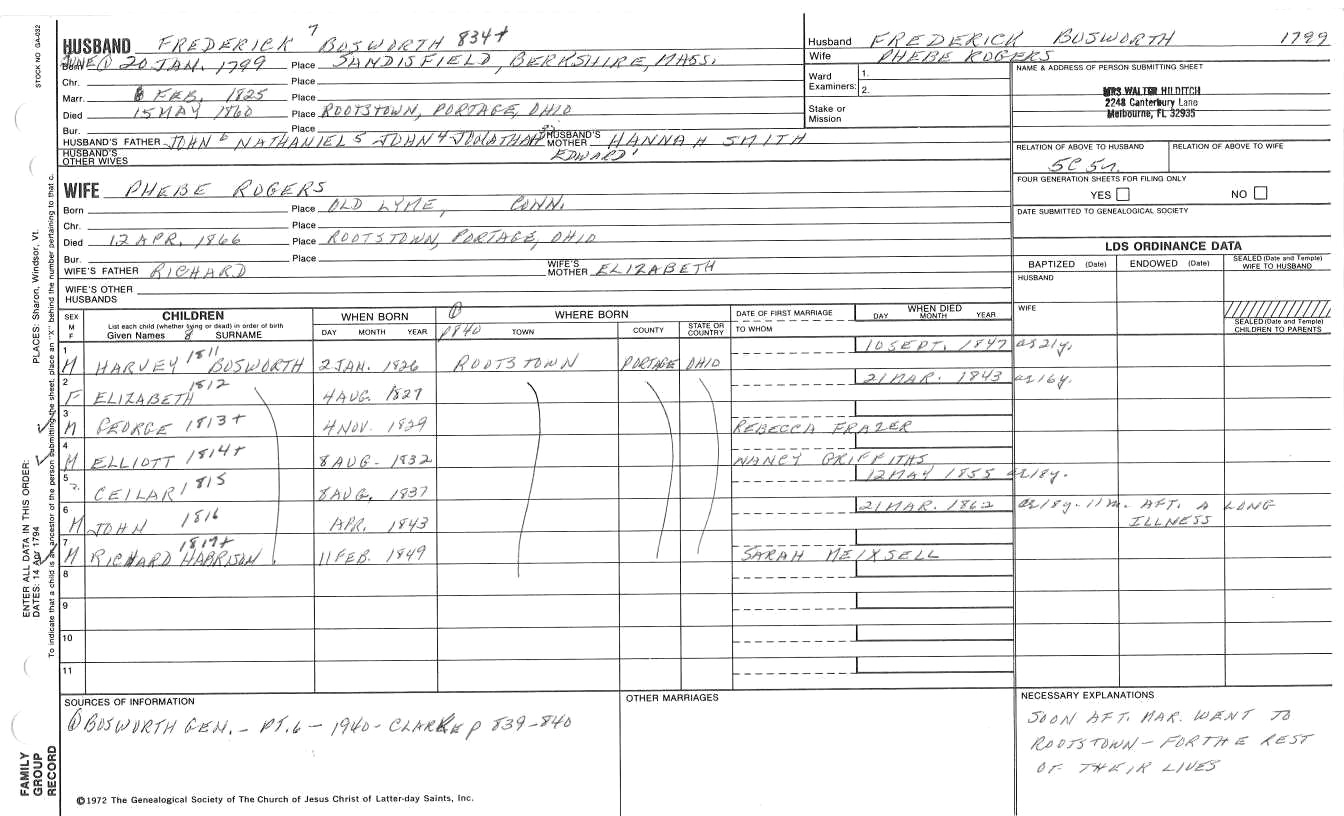 STOCK NO GA-032
HUSBAND FREDERICK 7 BOSWORTH 834+
Born JUNE ① 20 JAN. 1799 Place SANDISFIELD, BERKSHIRE, MASS.
Chr. Place
Marr. 6 FEB. 1825 Place
Died 15 MAY 1860 Place ROOTSTOWN, PORTAGE, OHIO
Bur. Place
HUSBAND'S FATHER JOHN 6 NATHANIEL 5 JOHN 4 JONATHAN HUSBAND'S MOTHER HANNAH SMITH
EDWARD 1
HUSBAND'S OTHER WIVES
Husband FREDERICK BOSWORTH 1799
Wife PHEBE ROGERS
Ward Examiners: 1.
2.
Stake or Mission
NAME & ADDRESS OF PERSON SUBMITTING SHEET
MRS WALTER HILDITCH
2248 Canterbury Lane
Melbourne, FL 32935
RELATION OF ABOVE TO HUSBAND RELATION OF ABOVE TO WIFE
5C 5r.
FOUR GENERATION SHEETS FOR FILING ONLY
YES NO
DATE SUBMITTED TO GENEALOGICAL SOCIETY
WIFE PHEBE ROGERS
Born Place OLD LYME, CONN.
Chr. Place
Died 12 APR. 1866 Place ROOTSTOWN, PORTAGE, OHIO
Bur. Place
WIFE'S FATHER RICHARD WIFE'S MOTHER ELIZABETH
WIFE'S OTHER HUSBANDS
LDS ORDINANCE DATA
BAPTIZED (Date) ENDOWED (Date) SEALED (Date and Temple) WIFE TO HUSBAND
HUSBAND
WIFE
SEALED (Date and Temple) CHILDREN TO PARENTS
SEX M F
CHILDREN
List each child (whether living or dead) in order of birth
Given Names 8 SURNAME
WHEN BORN
DAY MONTH YEAR
① WHERE BORN
p840 TOWN COUNTY STATE OR COUNTRY
DATE OF FIRST MARRIAGE
TO WHOM
WHEN DIED
DAY MONTH YEAR
1 M HARVEY 1811 BOSWORTH 2 JAN. 1826 ROOTSTOWN PORTAGE OHIO 10 SEPT. 1847 ae 21y.
2 F ELIZABETH 1812 4 AUG. 1827 21 MAR. 1843 ae 16y.
3 M GEORGE 1813+ 4 NOV. 1829 REBECCA FRAZER
4 M ELLIOTT 1814+ 8 AUG. 1832 NANCY GRIFFITHS
5 ? CEILAR 1815 8 AUG. 1837 12 MAY 1855 ae 18y.
6 M JOHN 1816 APR. 1843 21 MAR. 1862 ae 18y. 11m. AFT. A LONG ILLNESS
7 M RICHARD HARRISON 1817+ 11 FEB. 1849 SARAH MEIXSELL
8
9
10
11
SOURCES OF INFORMATION
① BOSWORTH GEN. - PT. 6 - 1940 - CLARKE p 839-840
OTHER MARRIAGES
NECESSARY EXPLANATIONS
SOON AFT. MAR. WENT TO
ROOTSTOWN - FOR THE REST
OF THEIR LIVES
©1972 The Genealogical Society of The Church of Jesus Christ of Latter-day Saints, Inc.
FAMILY
GROUP
RECORD
ENTER ALL DATA IN THIS ORDER:
DATES: 14 Apr 1794
PLACES: Sharon, Windsor, Vt.
To indicate that a child is an ancestor of the person submitting the sheet, place an "X" behind the number pertaining to that c.